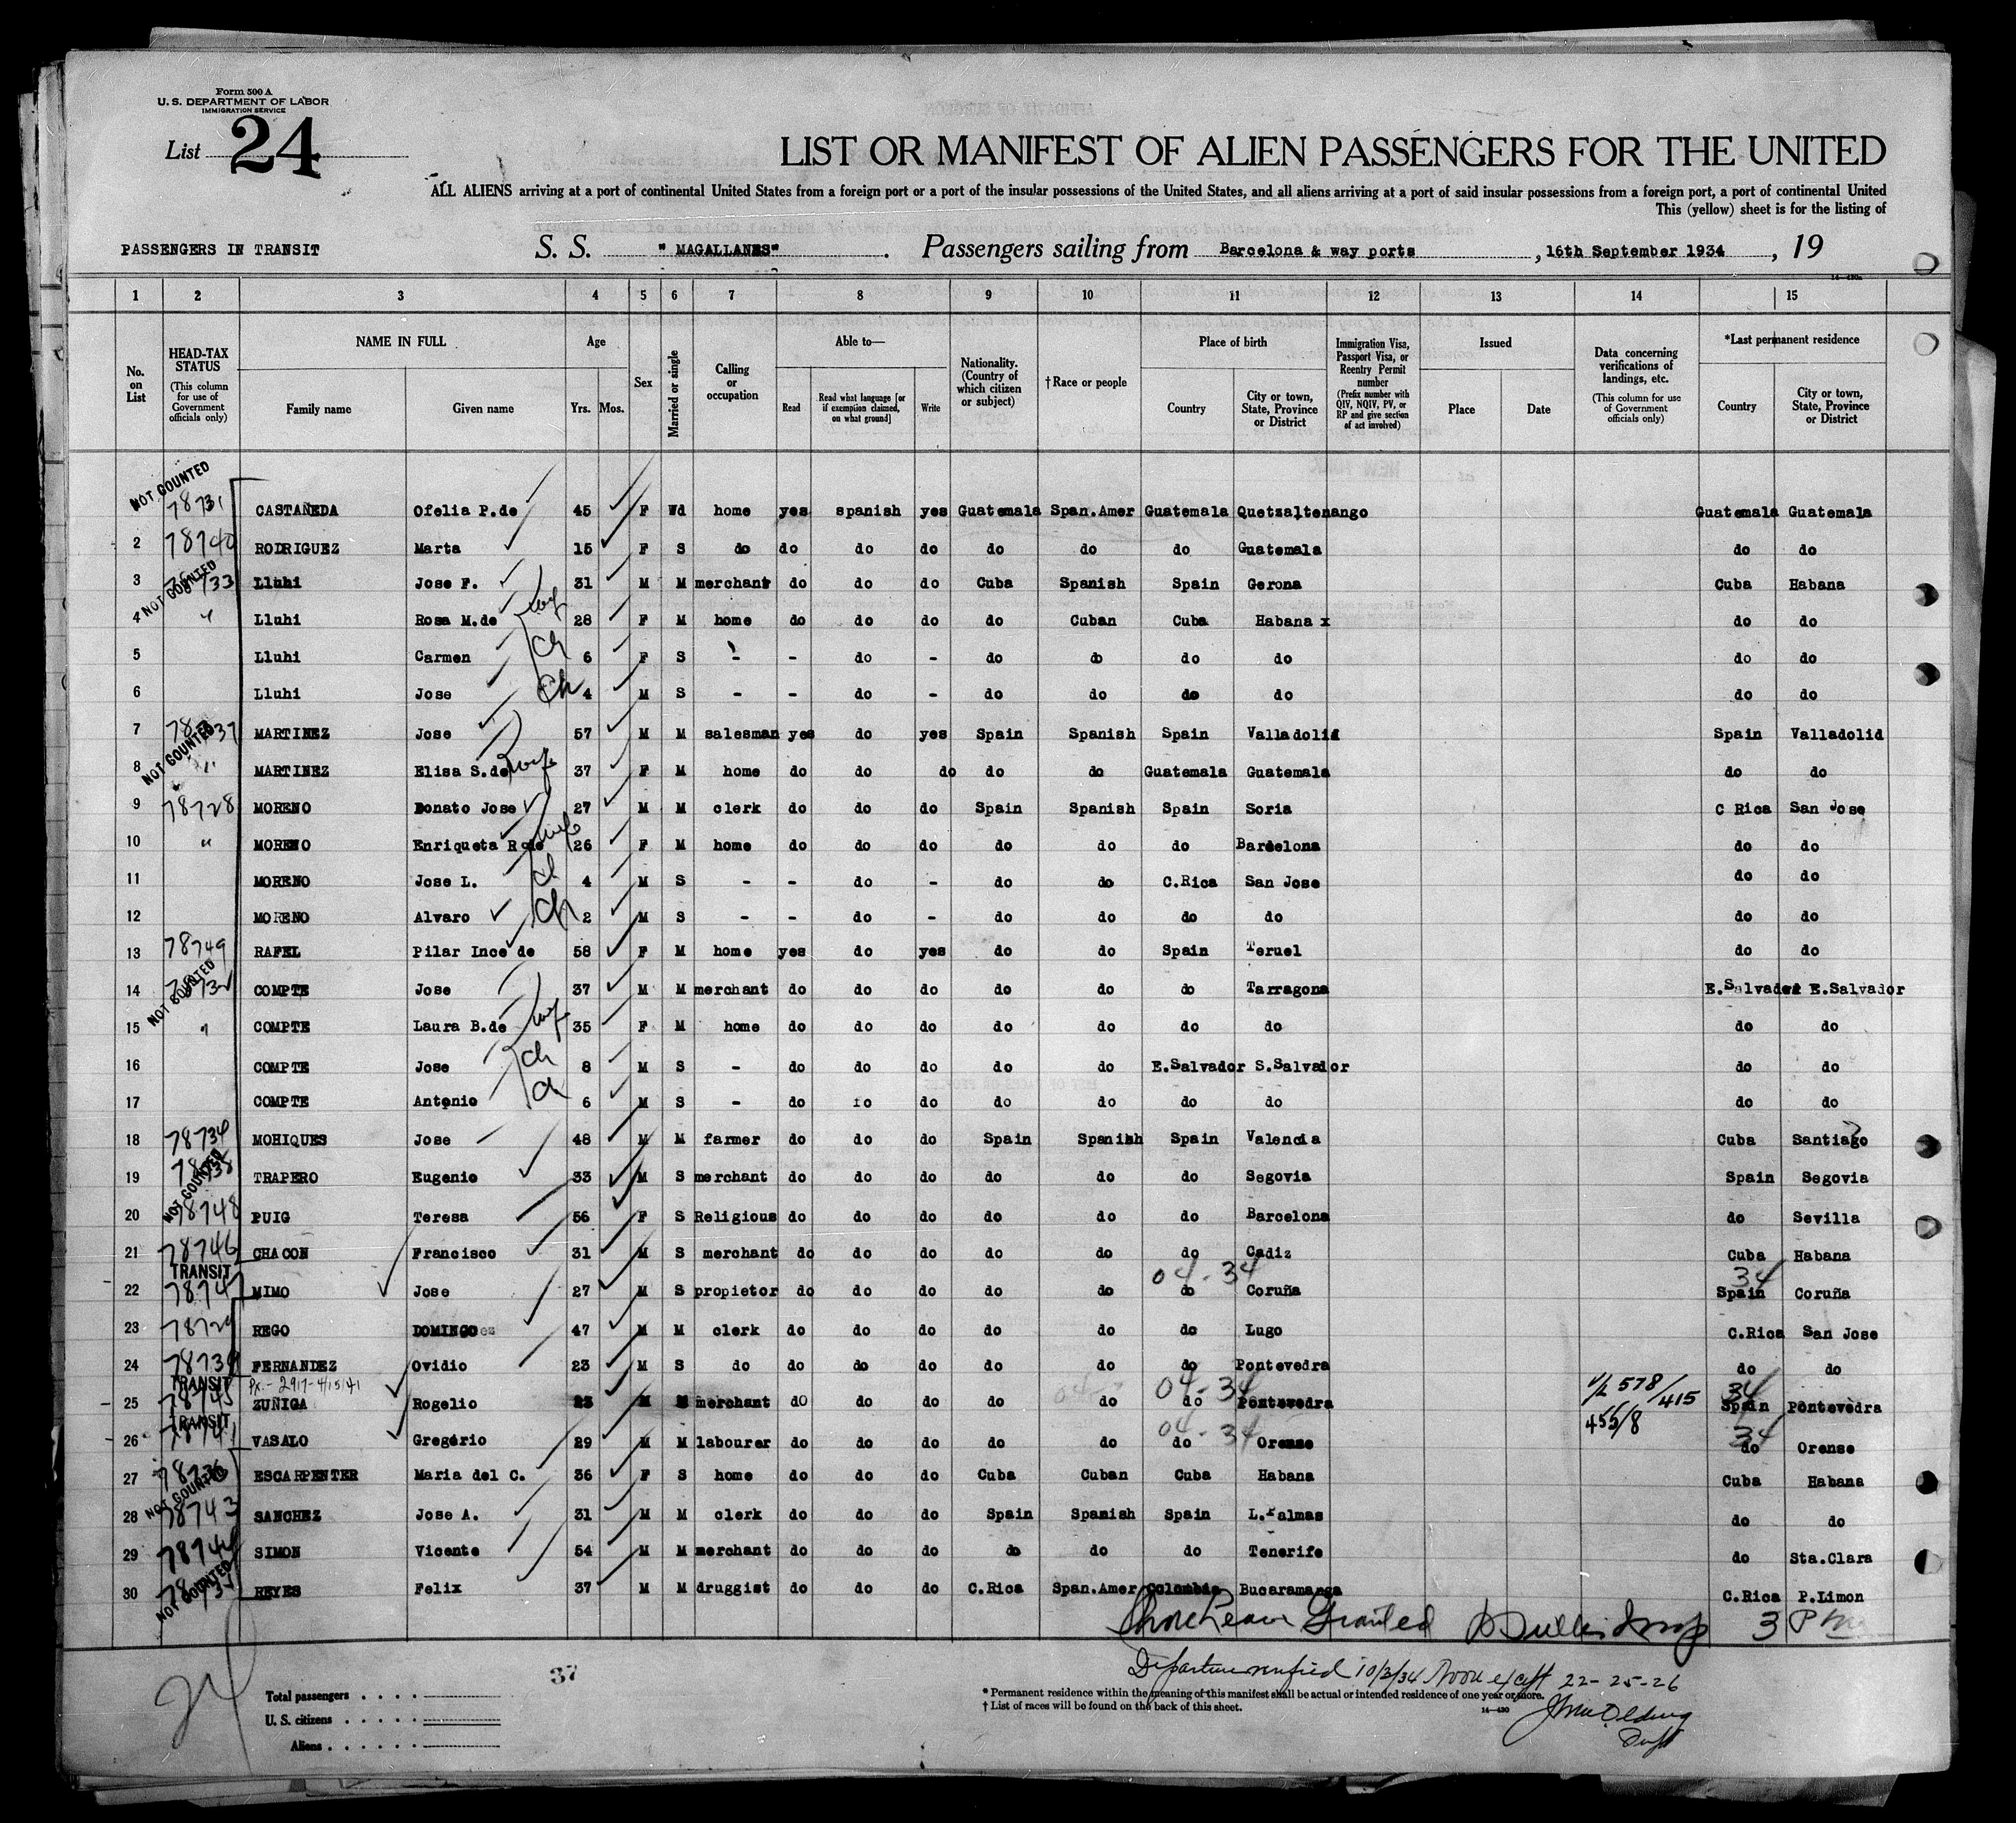 Form 500 A
U. S. DEPARTMENT OF LABOR
IMMIGRATION SERVICE
List 24
LIST OR MANIFEST OF ALIEN PASSENGERS FOR THE UNITED
ALL ALIENS arriving at a port of continental United States from a foreign port or a port of the insular possessions of the United States, and all aliens arriving at a port of said insular possessions from a foreign port, a port of continental United
This (yellow) sheet is for the listing of
PASSENGERS IN TRANSIT S. S. "MAGALLANES" . Passengers sailing from Barcelona & way ports , 16th September 1934 , 19
14—430a
1 2 3 4 5 6 7 8 9 10 11 12 13 14 15
No. on List
HEAD-TAX STATUS (This column for use of Government officials only)
NAME IN FULL Family name Given name
Age Yrs. Mos.
Sex
Married or single
Calling or occupation
Able to— Read Read what language [or if exemption claimed, on what ground] Write
Nationality. (Country of which citizen or subject)
†Race or people
Place of birth Country City or town, State, Province or District
Immigration Visa, Passport Visa, or Reentry Permit number (Prefix number with QIV, NQIV, PV, or RP and give section of act involved)
Issued Place Date
Data concerning verifications of landings, etc. (This column for use of Government officials only)
*Last permanent residence Country City or town, State, Province or District
NOT COUNTED
78731 CASTAÑEDA Ofelia P.de 45 F Wd home yes spanish yes Guatemala Span.Amer Guatemala Quetzaltenango Guatemala Guatemala
2 78740 RODRIGUEZ Marta 15 F S do do do do do do do Guatemala do do
NOT COUNTED
3 78733 Lluhi Jose F. 31 M M merchant do do do Cuba Spanish Spain Gerona Cuba Habana
4 " Lluhi Rosa M.de wife 28 F M home do do do do Cuban Cuba Habana x do do
5 Lluhi Carmen ch 6 F S - - do - do do do do do do
6 Lluhi Jose ch 4 M S - - do - do do do do do do
7 78737 MARTINEZ Jose 57 M M salesman yes do yes Spain Spanish Spain Valladolid Spain Valladolid
NOT COUNTED
8 " MARTINEZ Elisa S.de wife 37 F M home do do do do do Guatemala Guatemala do do
9 78728 MORENO Donato Jose 27 M M clerk do do do Spain Spanish Spain Soria C Rica San Jose
10 " MORENO Enriqueta R de wife 26 F M home do do do do do do Barcelona do do
11 MORENO Jose L. ch 4 M S - - do - do do C.Rica San Jose do do
12 MORENO Alvaro ch 2 M S - - do - do do do do do do
13 78749 RAFEL Pilar Ince de 58 F M home yes do yes do do Spain Teruel do do
NOT COUNTED
14 78732 COMPTE Jose 37 M M merchant do do do do do do Tarragona E.Salvador E.Salvador
15 " COMPTE Laura B.de wife 35 F M home do do do do do do do do do
16 COMPTE Jose ch 8 M S - do do do do do E.Salvador S.Salvador do do
17 COMPTE Antonio ch 6 M S - do do do do do do do do do
18 78734 MOHIQUES Jose 48 M M farmer do do do Spain Spanish Spain Valencia Cuba Santiago
19 78738 TRAPERO Eugenio 33 M S merchant do do do do do do Segovia Spain Segovia
NOT COUNTED
20 78748 PUIG Teresa 56 F S Religious do do do do do do Barcelona do Sevilla
21 78746 CHACON Francisco 31 M S merchant do do do do do do Cadiz Cuba Habana
TRANSIT 04-34 34
22 78747 MIMO Jose 27 M S propietor do do do do do do Coruña Spain Coruña
23 78729 REGO DOMINGO 47 M M clerk do do do do do do Lugo C.Rica San Jose
24 78739 FERNANDEZ Ovidio 23 M S do do do do do do do Pontevedra do do
TRANSIT 04-34 V/L 578/415 34
25 78745 ZUÑIGA Rogelio 23 M M merchant do do do do do do Pontevedra Spain Pontevedra
TRANSIT 04-34 455/8 34
26 78741 VASALO Gregório 29 M M labourer do do do do do do Orense do Orense
27 78736 ESCARPENTER Maria del C. 36 F S home do do do Cuba Cuban Cuba Habana Cuba Habana
NOT COUNTED
28 78743 SANCHEZ Jose A. 31 M M clerk do do do Spain Spanish Spain L.Palmas do do
29 78744 SIMON Vicente 54 M M merchant do do do do do do Tenerife do Sta.Clara
NOT COUNTED
30 REYES Felix 37 M M druggist do do do C.Rica Span.Amer Colombia Bucaramanga C.Rica P.Limon
Shore Leave Granted
Departure verified 10/3/34 except 22-25-26
37
Total passengers . . . .
U. S. citizens . . . . .
Aliens . . . . . .
* Permanent residence within the meaning of this manifest shall be actual or intended residence of one year or more.
† List of races will be found on the back of this sheet.
14—430